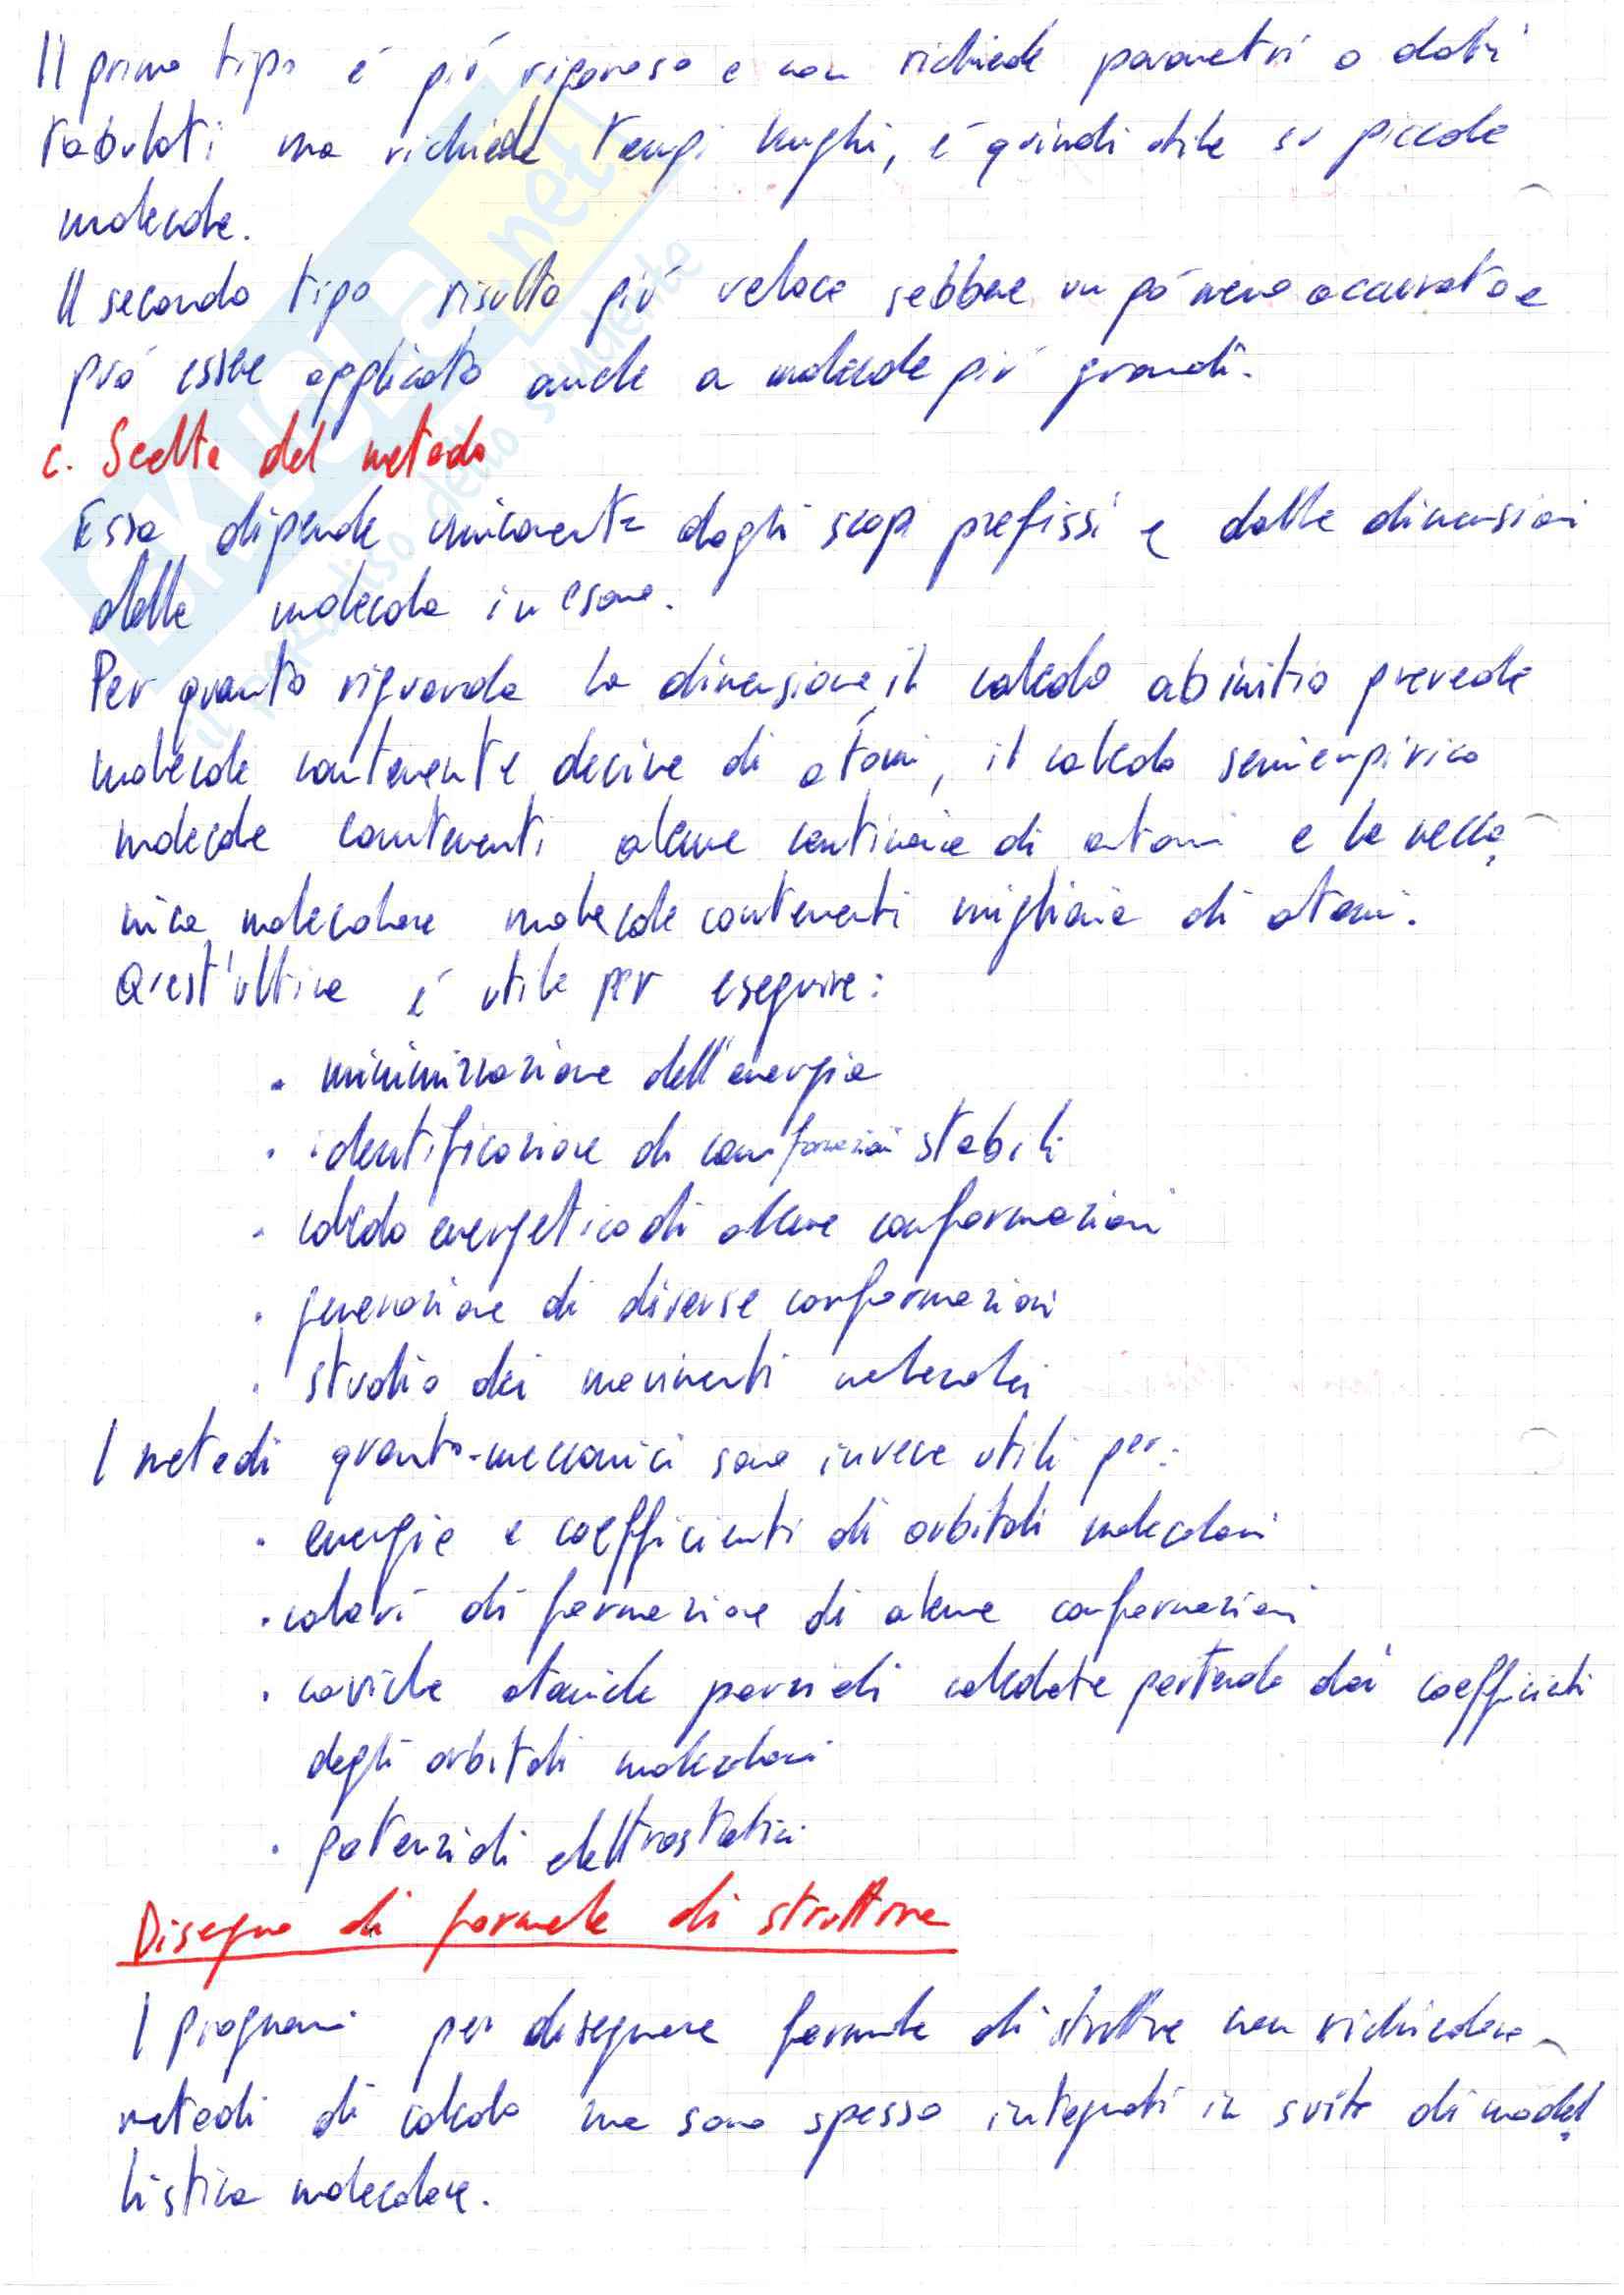 Il primo tipo é piú rigoroso e non richiede parametri o dati
tabulati ma richiede tempi lunghi, é quindi utile su piccole
molecole.
Il secondo tipo risulta piú veloce sebbene un pó meno accurato e
puó essere applicato anche a molecole piú grandi.
c. Scelta del metodo
Essa dipende unicamente dagli scopi prefissi e dalle dimensioni
della molecola in esame.
Per quanto riguarda la dimensione, il calcolo ab initio prevede
molecole contenente decine di atomi, il calcolo semiempirico
molecole contenenti alcune centinaia di atomi e la mecca
nica molecolare molecole contenenti migliaia di atomi.
Quest'ultima é utile per eseguire:
• minimizzazione dell'energia
• identificazione di conformazioni stabili
• calcolo energetico di alcune conformazioni
• generazione di diverse conformazioni
• studio dei movimenti molecolari
I metodi quanto-meccanici sono invece utili per:
• energie e coefficienti di orbitali molecolari
• calori di formazione di alcune conformazioni
• cariche atomiche parziali calcolate partendo dai coefficienti
degli orbitali molecolari
• potenziali elettrostatici
Disegno di formule di struttura
I programmi per disegnare formule di struttura non richiedono
metodi di calcolo ma sono spesso integrati in suite di model
listica molecolare.
SKUOLA.net
il paradiso dello studente